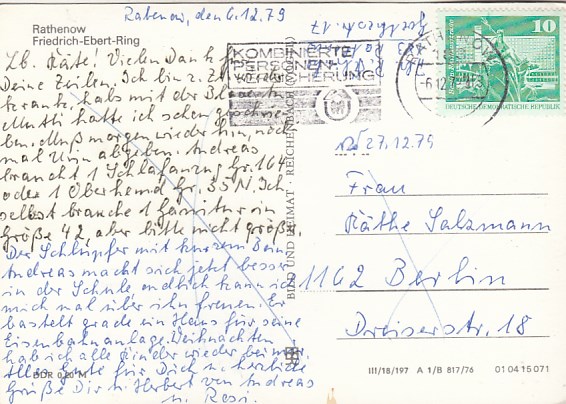 Rathenow, den 6.12.79
Rathenow
Friedrich-Ebert-Ring
Lb. Käte! Vielen Dank f.
Deine Zeilen. Ich bin z. Zt. wieder
krank, habs mit der Blase
Mutti hatte ich schon geschrie
ben. Muß morgen wieder hin, noch
mal Urin abgeben. Andreas
braucht 1 Schlafanzug Gr. 164
oder 1 Oberhemd Gr. 35 N. Ich
selbst brauche 1 Garnitur in
Größe 42, aber bitte nicht größer.
Der Schlüpfer mit kurzem Bein
Andreas macht sich jetzt besse
in der Schule endlich kann ich
mich mal über ihn freuen. Er
bastelt grade ein Haus für seine
Eisenbahnanlage. Weihnachten
hab ich alle Kinder wieder bei mir.
Alles Gute für Dich u. herzliche
Grüße Dir v. Herbert von Andreas
u. Resi.
KOMBINIERTE
PERSONEN-
VERSICHERUNG
RATHENOW
-6.12.79
10
DEUTSCHE DEMOKRATISCHE REPUBLIK
27.12.79
Frau
Käthe Salzmann
1162 Berlin
Dreiserstr. 18
BILD UND HEIMAT · REICHENBACH
DDR 0,20 M
III/18/197 A 1/B 817/76 01 04 15 071